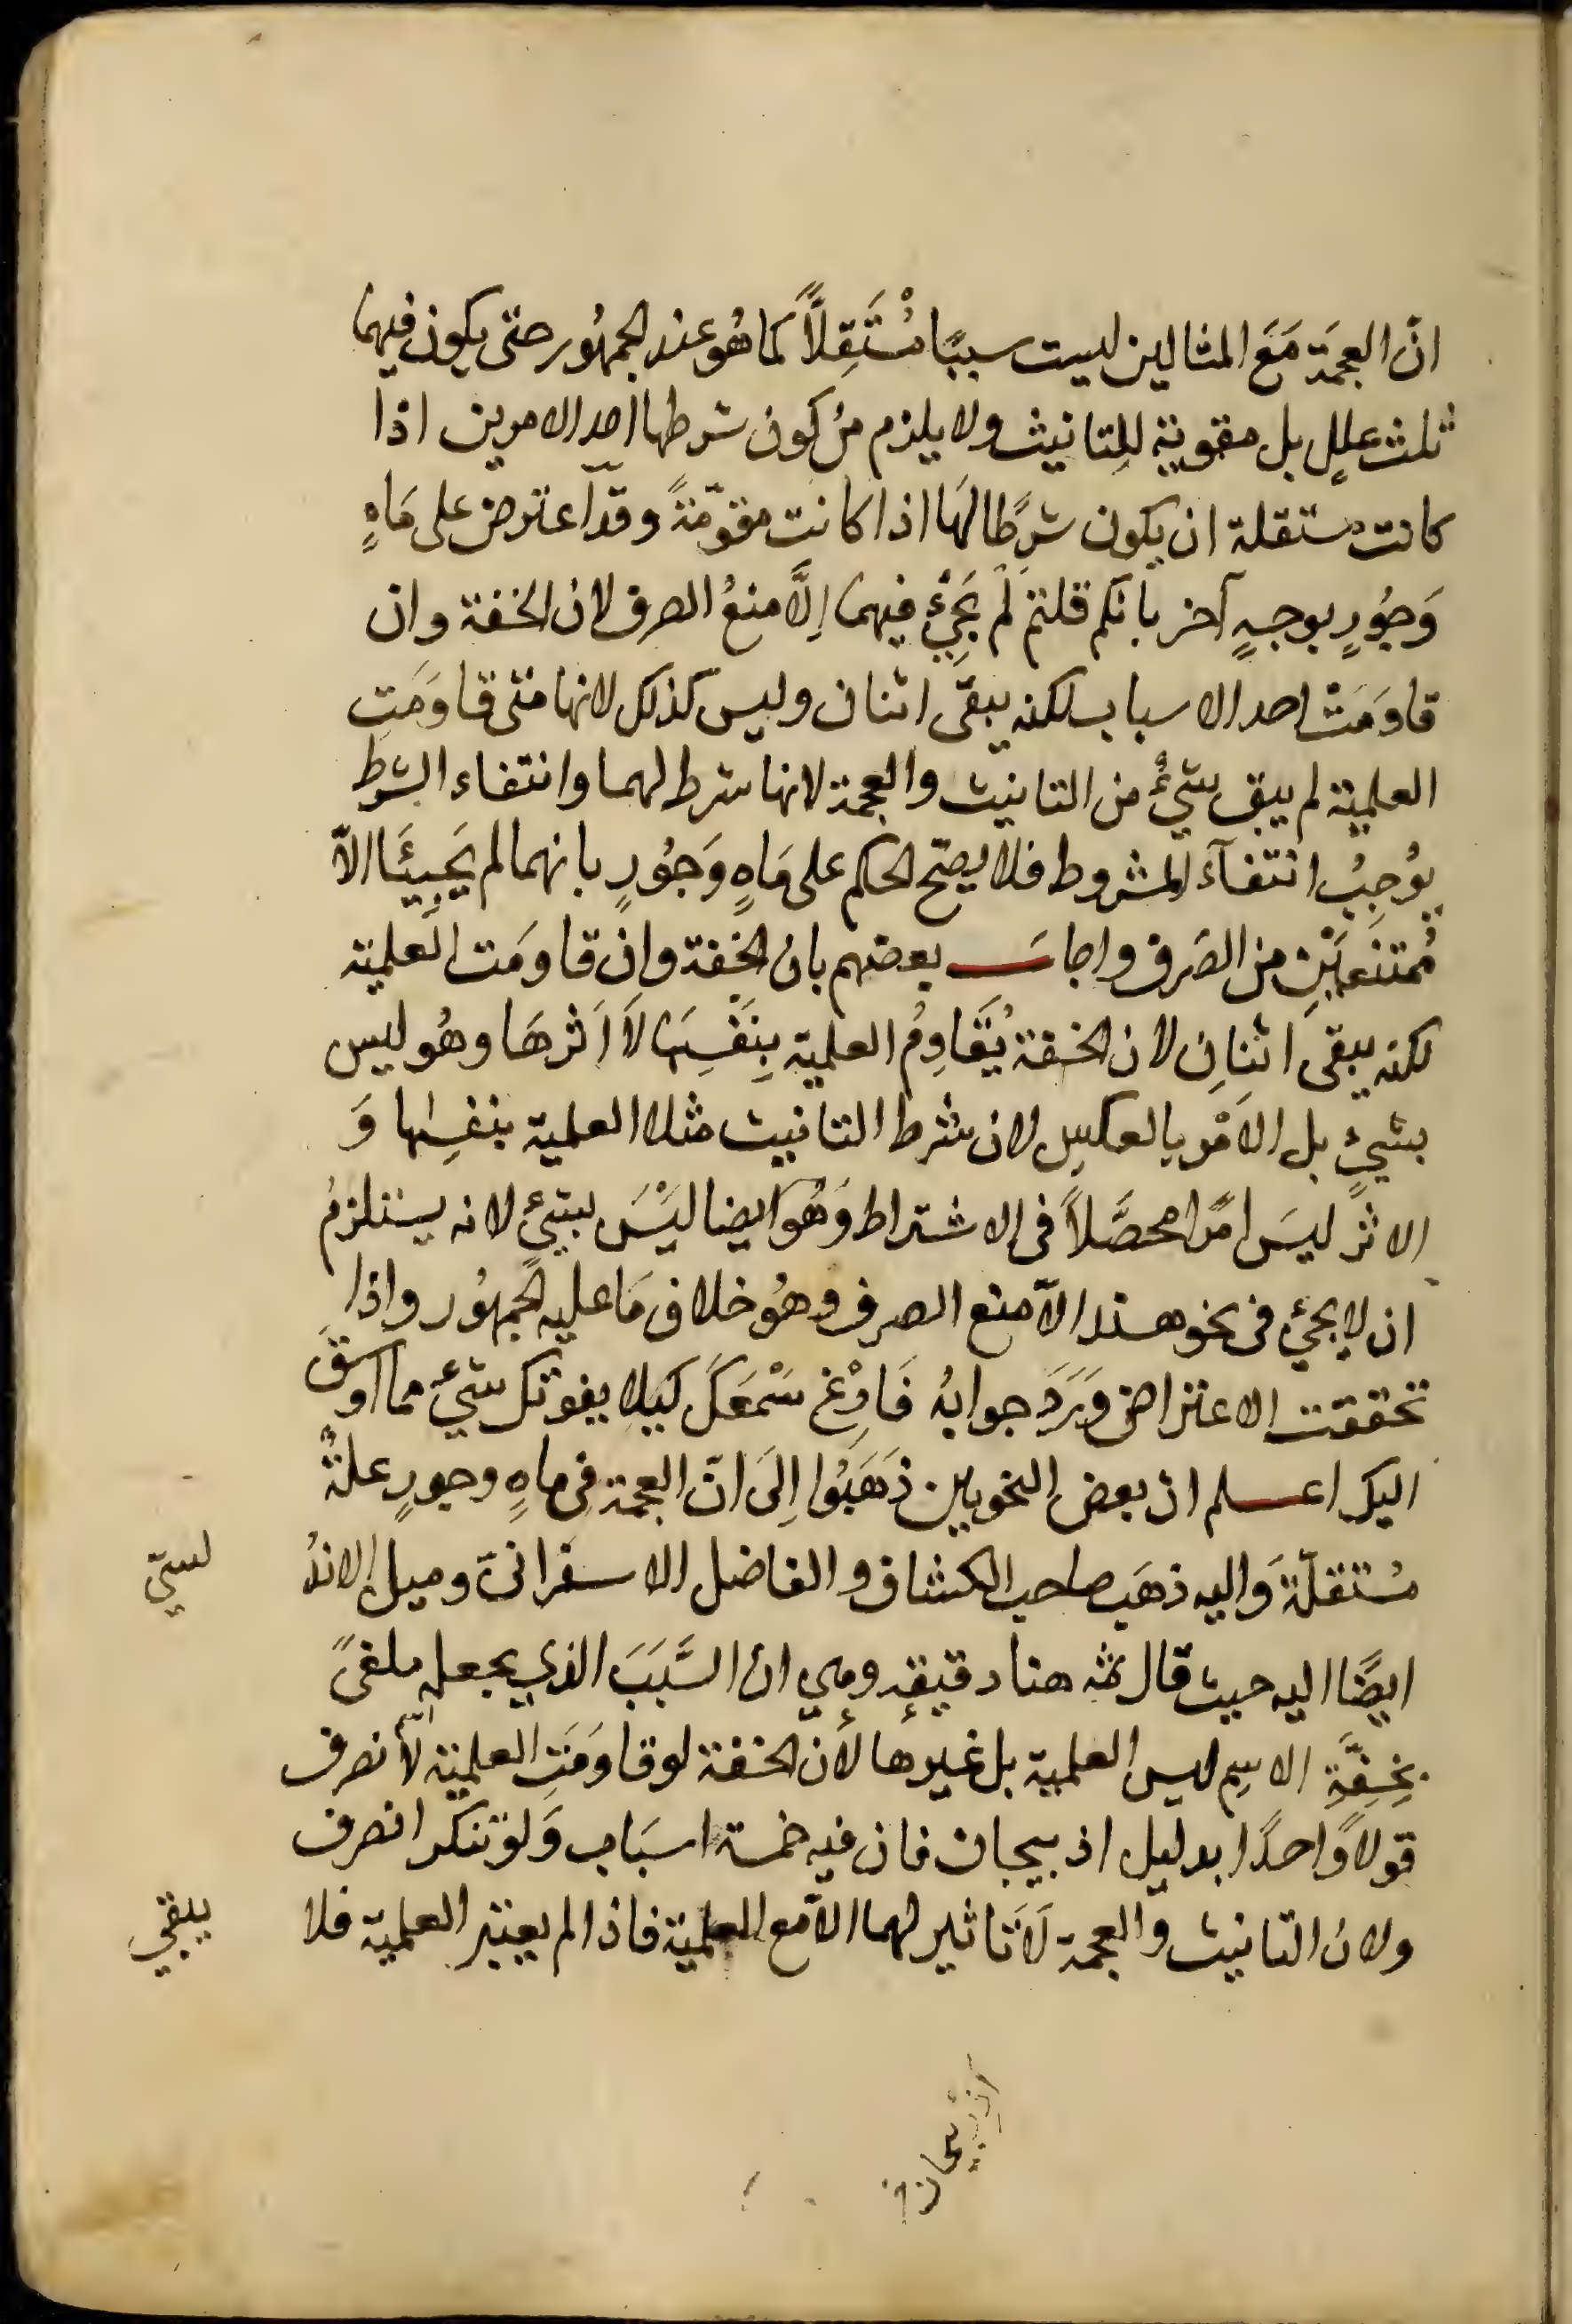 انّ العجمَة مَعَ المثالين ليست سببًا مُسْتَقِلًّا كما هُو عند الجمهُور حتى يكون فيهما
ثلث عللٍ بل مقوية للتانيث ولا يلزم من كون شرطها احد الامرين اذا
كانت مستقلة ان يكون شرطًا لهَا اذا كانت مقوّمةً وقد اعترض على مَاهٍ
وَجُورٍ بوجهٍ آخر بانكم قلتم لم يَجِئْ فيهما اِلَّا منعُ الصرف لان الخفة وان
قاوَمَتْ احد الاسباب لكنه يبقى اثنان وليس كذلك لانها متى قاوَمَتِ
العلمية لم يبق شيْءٌ من التانيث والعجمة لانها شرط لهما وانتفاء الشرط
يوُجِبُ انتفآءَ المشروط فلا يصحّ الحكم على مَاهٍ وَجُورٍ بانهما لم يَجِيئَا الاّ
مُمتنعَيْنِ من الصَرف واجابَ بعضهم بان الخفة وان قاومَت العلمية
لكنه يبقى اثنانِ لان الخفة يُقَاوِمُ العلمية بِنَفْسِهَا لَا اَثرهَا وهُو ليس
بشيءٍ بل الاَمْر بالعكسِ لان شرط التانيث مثلا العلمية بنفسِها وَ
الاثرُ ليسَ امرًا محصَّلاً فى الاشتراط وَهُوَ ايضا ليْسَ بشيءٍ لانه يستلزمُ
ان لا يجئ فى نحو هذا الاّ منع الصرف وهُو خلاف مَا عليه الجمهُور واذا
تحققت الاعتراض وَرَدَ جوابهُ فَافْرِغ سَمْعَكَ كيلا يفوتك شيْءٌ مما اوسقَ
اليك اعلم ان بعض النحويين ذَهَبُوا اِلَى انّ العجمة فى ماهٍ وجورٍ علةٌ
مُستقلّة وَاليه ذهَب صاحب الكشاف والفاضل الاسفرانىّ وميل الاندُ
لسىّ
ايضًا اليه حيث قال ثمه هنا دقيقة وهي ان السَّبَبَ الذي يجعله ملغىً
بخِفَّةِ الاسِم ليس العلمية بل غيرها لأن الخفة لو قاوَمَتِ العلمية لاَنصرف
قولاً وَاحدًا بدليل اذبيجان فان فيه خمسة اسبَاب وَلو تنكر انصرف
ولان التانيث والعجمة لاَ تاثير لهما الاّ مع العلمية فاذا لم يعتبر العلمية فلا
يبقي